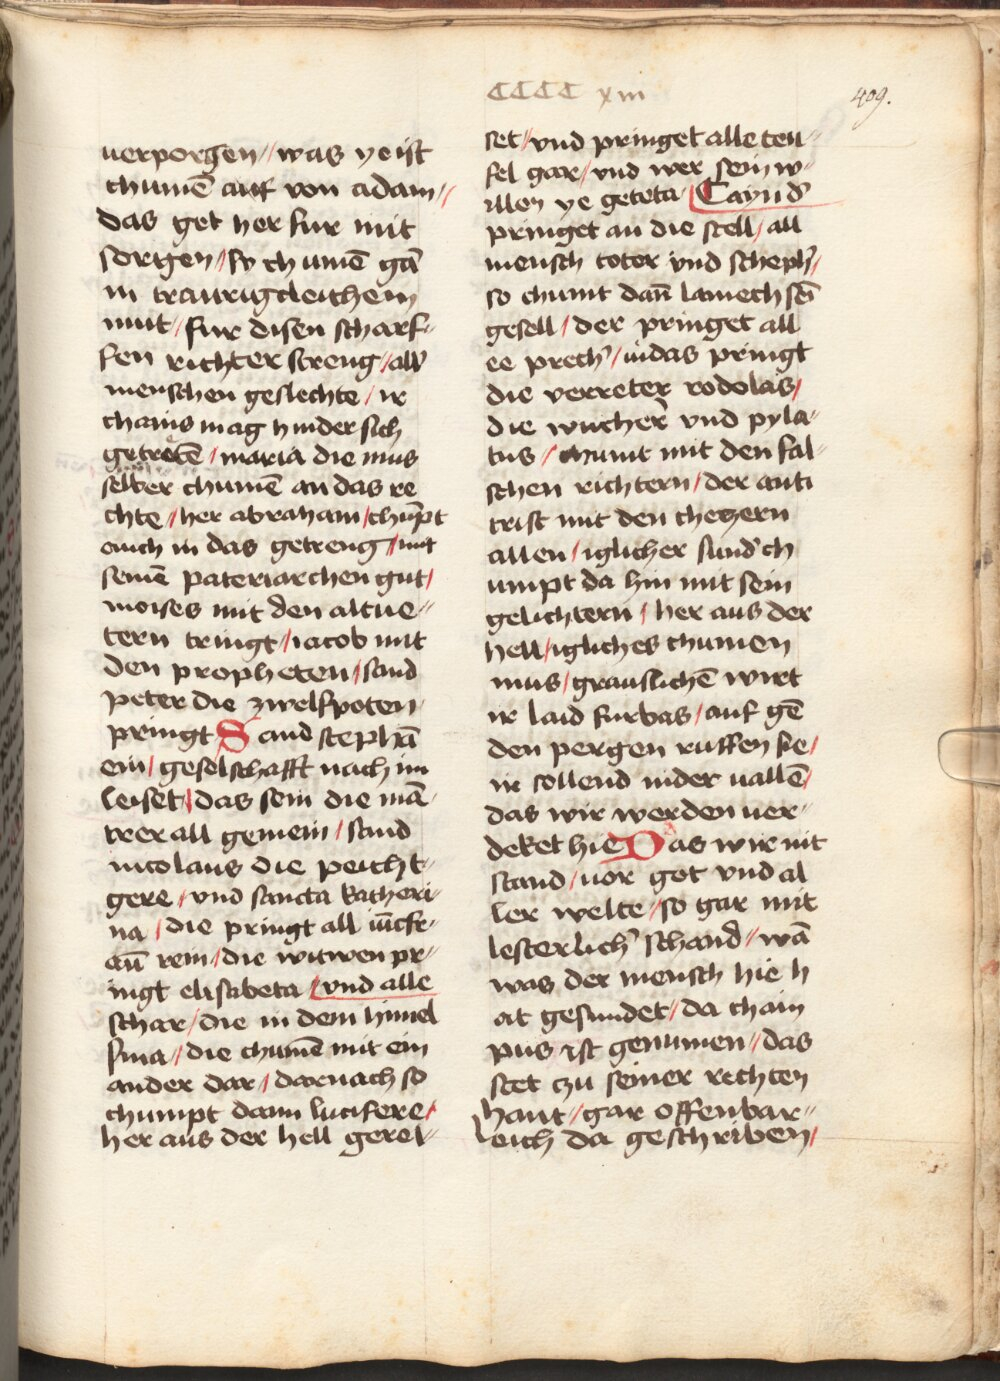 CCCC xiii
409.
uerporgen // was ye ist
chumē auf von adam //
das get her fur mit
sorigen / sy chumē gā
in traurigcleichem
mut / fur disen scharf-
fen richter streng / all
menschen geslechte / ir
chains mag hinder sich
getretē / maria die mus
selber chumē an das re
chte / her abraham / chūpt
auch in das getreng / mit
seinē pateriarchen gut /
moises mit den altue-
tern tringt / iacob mit
den propheten / sand
peter die zwelfpoten
pringt Sand stephā
ein / geselschafft nach im
leiset / das sein die mā-
trer all gemein / sand
nicolaus die peicht-
gere / vnd sancta katheri-
na / die pringt all iūcfr-
aū rein / die witwen pr-
ingt elisabeta / vnd alle
schar / die in dem himel
sina / die chumē mit ein
ander dar / darnach so
chumpt dann lucifere /
her aus der hell gerei-
set / vnd pringet alle teu-
fel gar / vnd wer sein w-
illen ye geteta / Cayn d'
pringet an die stell / all
mensch toter vnd scheph' /
so chumt dañ lamech sē
gesell / der pringet all
ee prech' / iudas pringt
die verreter rodolas /
die wucher vnd pyla-
tus / chumt mit den fal-
schen richtern / der anti
trist mit den checzern
allen / iglicher sund' ch
umpt da hin mit sein
gelichtern / her aus der
hell / igliches chumen
mus / grauslichē wirt
ir laid furbas / auf gē
den pergen ruffen sie /
ir sollend nider uallē /
das wir werden uer-
deket hie Das wir nit
stand / uor got vnd al
ler welte / so gar mit
lesterlich' schand / wā
was der mensch hie h
at gesundet / da cham
pus ist genumen / das
stet czu seiner rechten
hant / gar offenbar-
leich da geschriben /